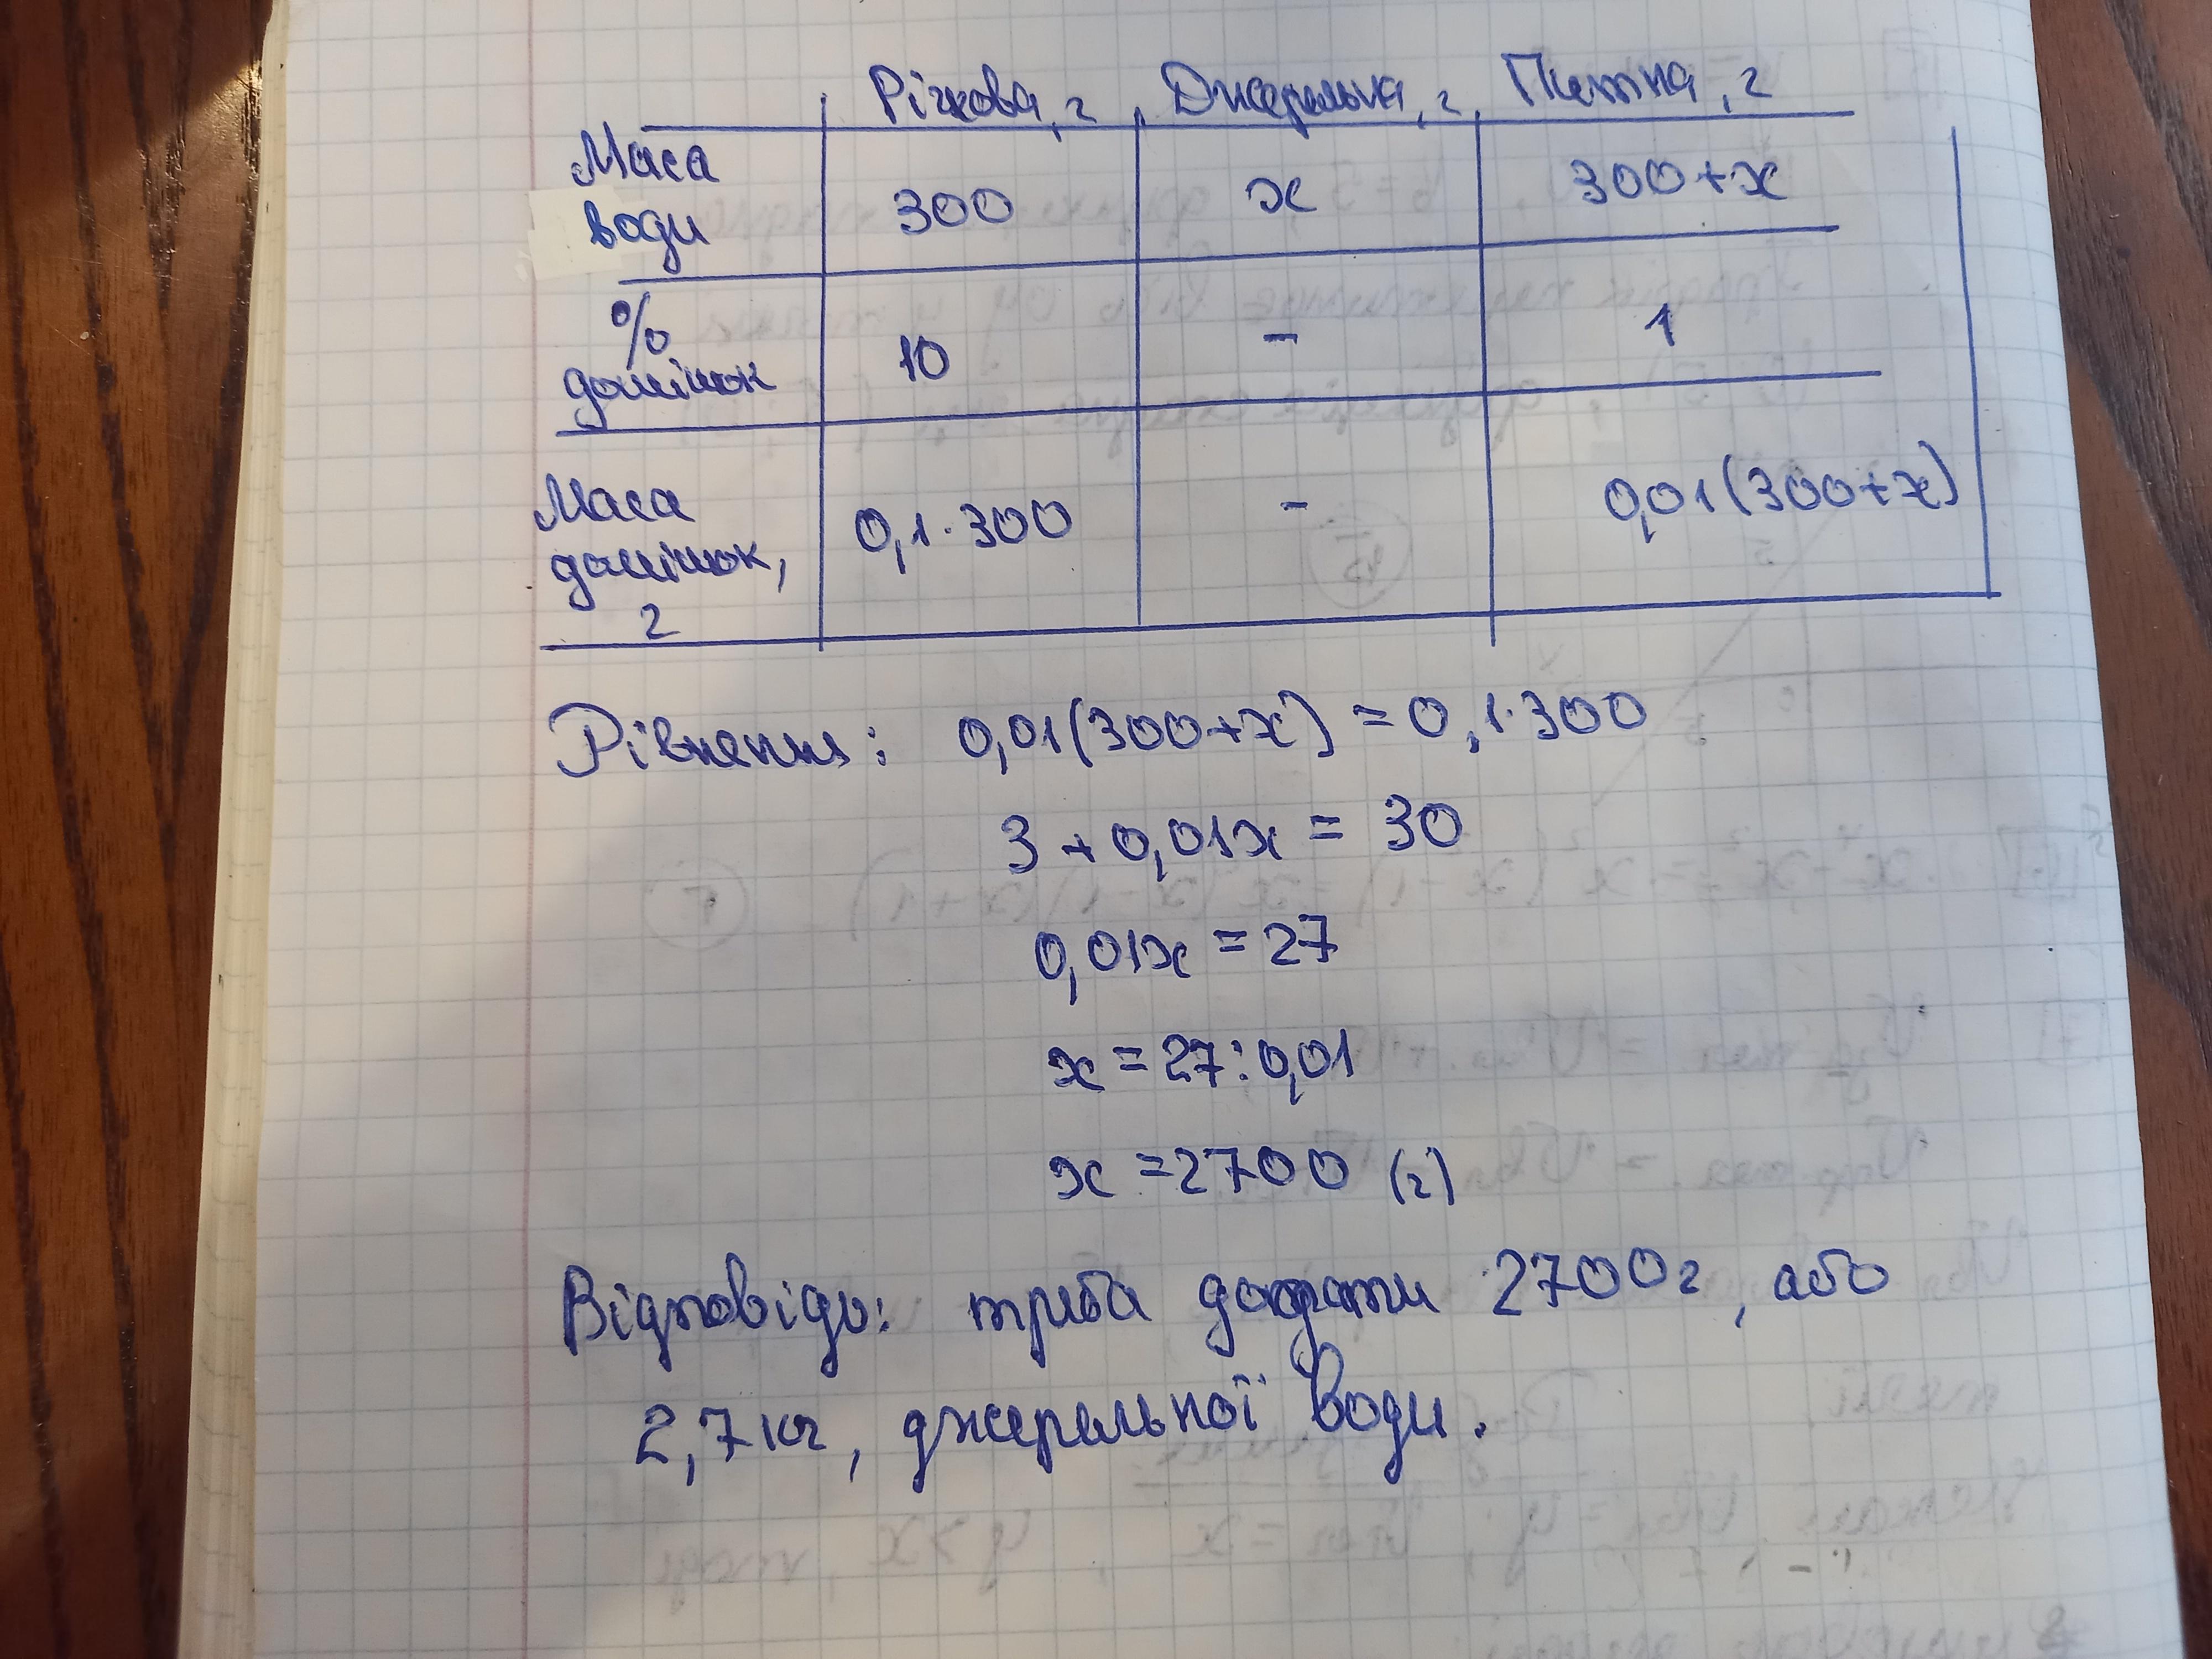 Річкова, г Джерельна, г Питна, г
Маса води 300 x 300+x
% домішок 10 - 1
Маса домішок, г 0,1·300 - 0,01(300+x)
Рівняння: 0,01(300+x) = 0,1·300
3 + 0,01x = 30
0,01x = 27
x = 27:0,01
x = 2700 (г)
Відповідь: треба додати 2700г, або
2,7 кг, джерельної води.